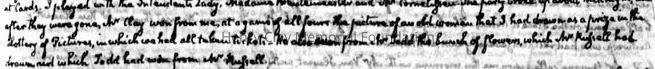 at Cards. I played with the Intendants Lady, Madame
after they were gone, Mr Clay won from me, at a game of all fours the picture of an old woman that I had drawn as a prize in the
Lottery of Pictures, in which we had all taken tickets. He also won from Mr Todd the bunch of flowers, which Mr Russell had
drawn, and which Todd had won from Mr Russell.